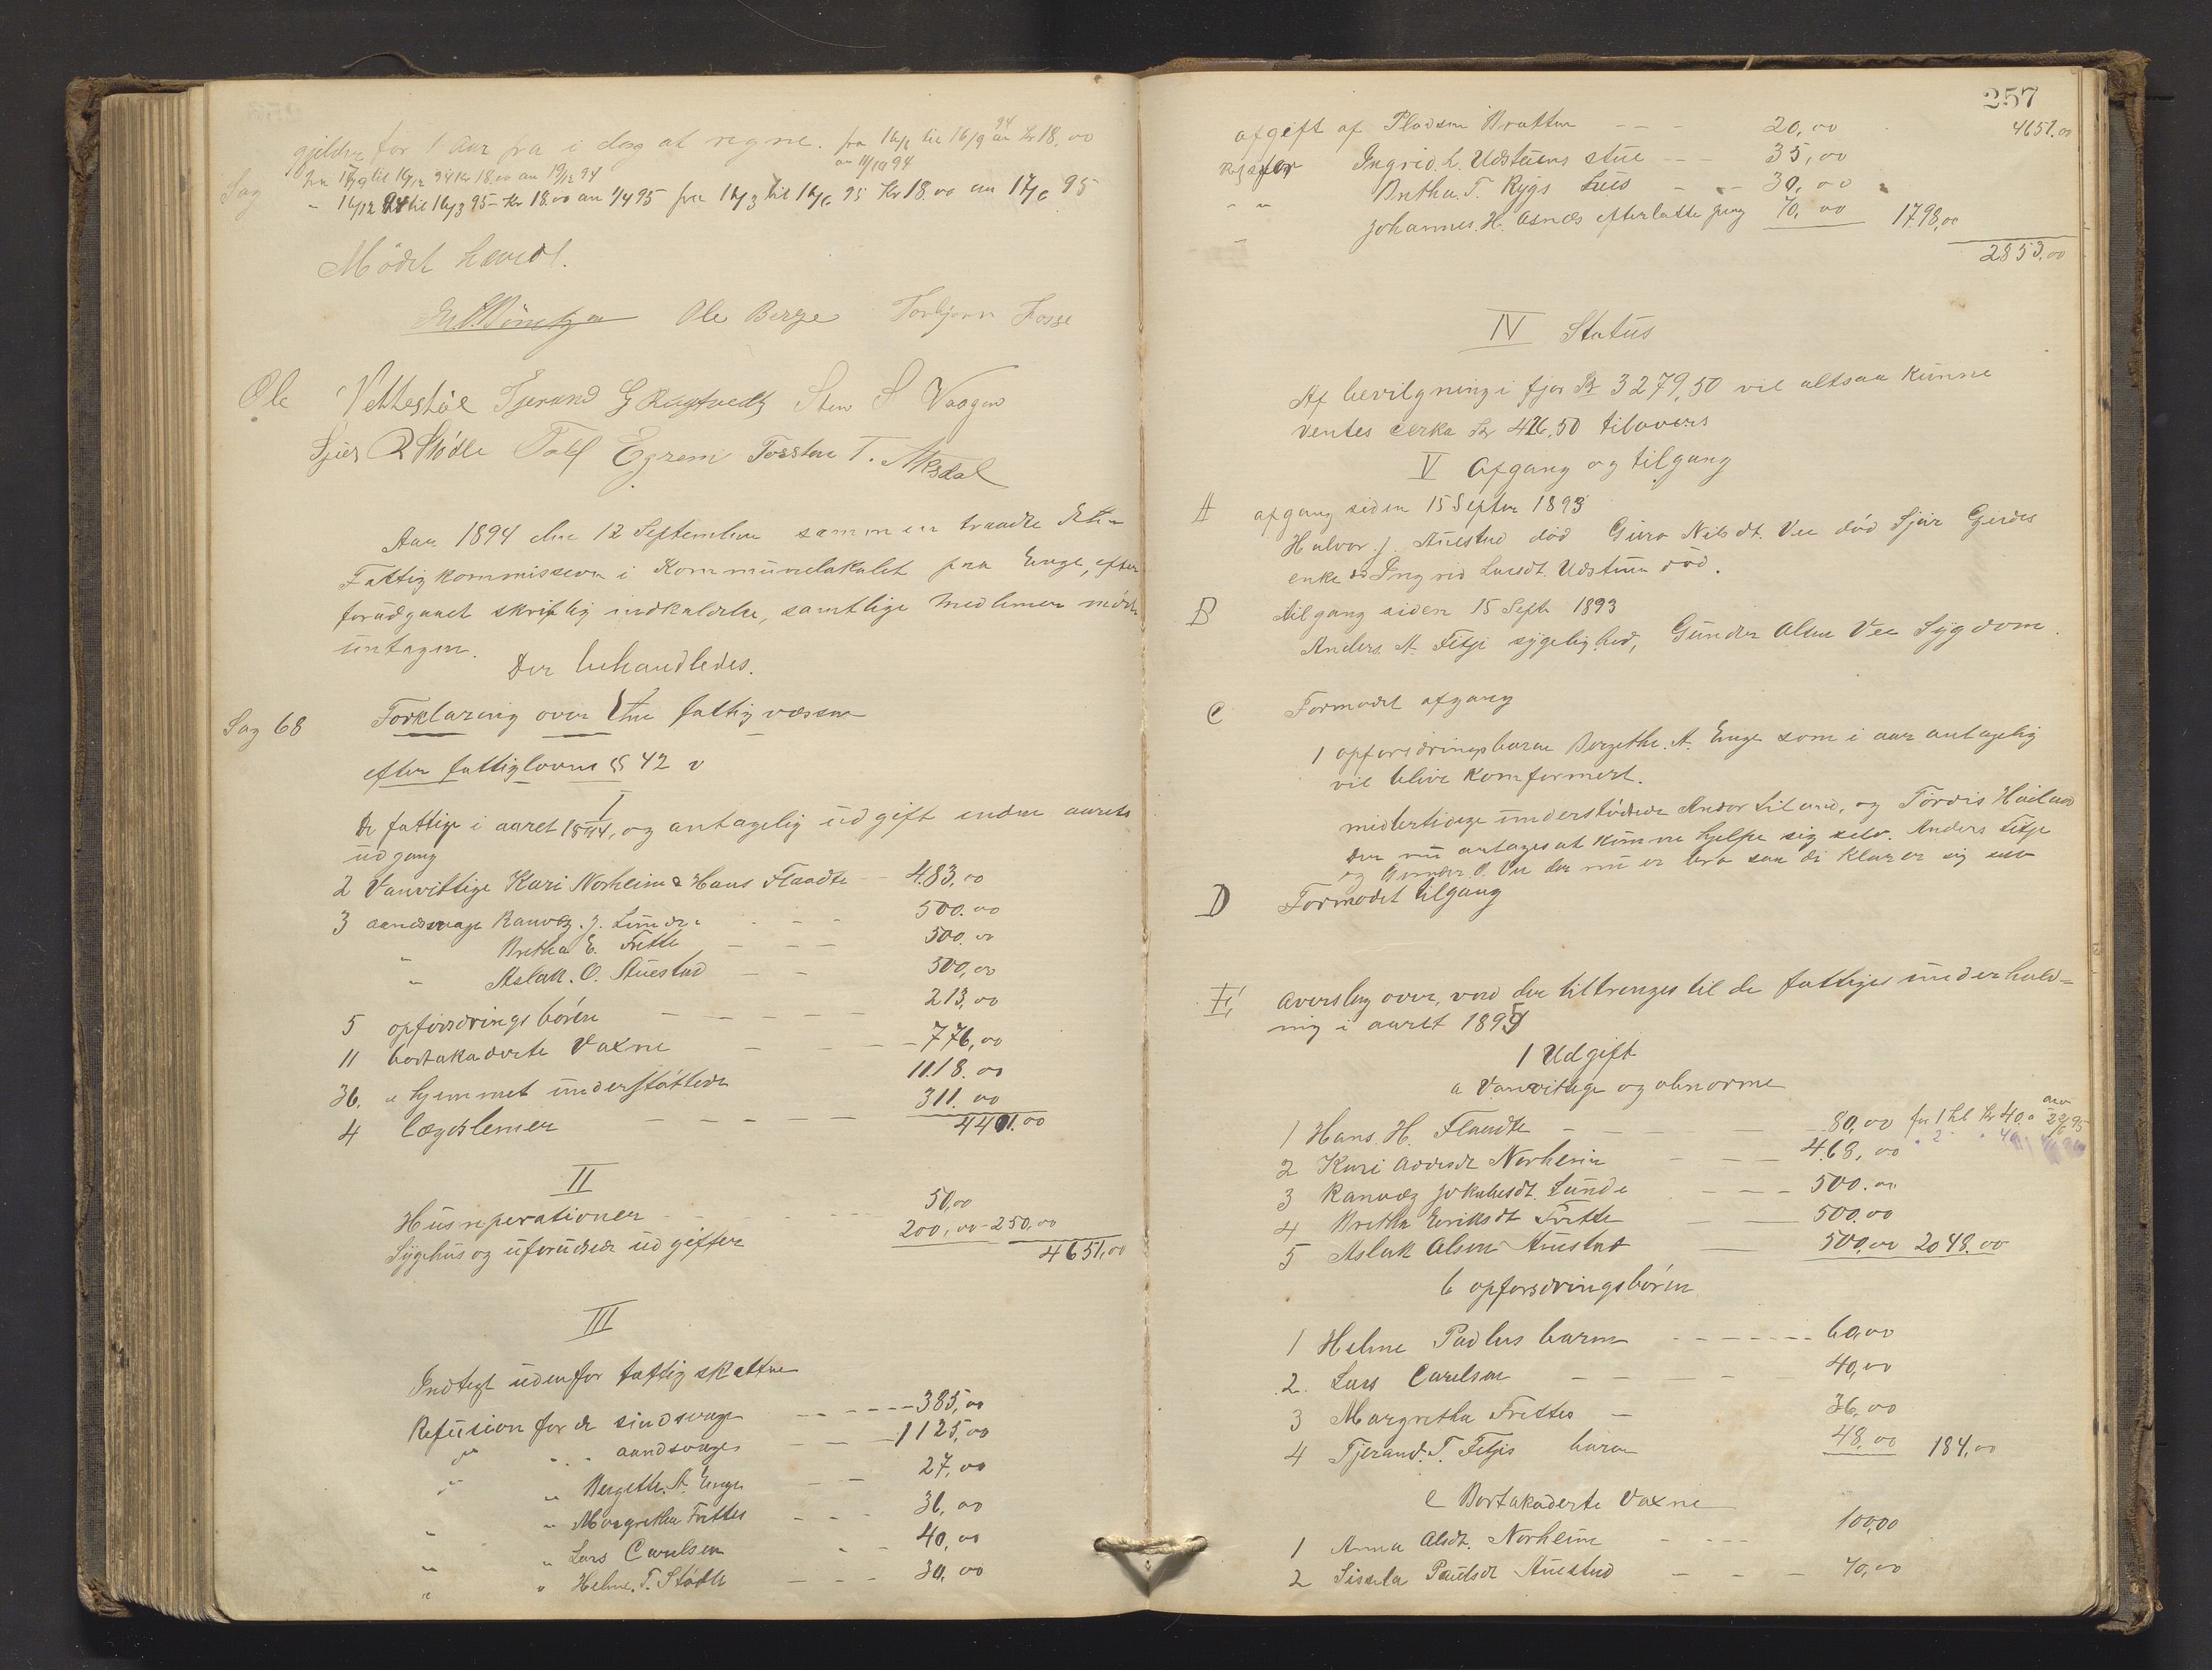 gjelder for 1 Aar fra i dag at regne. fra 16/6 til 16/9 94 an Kr 18,00
an 11/10 94
Sag
fra 16/9 til 16/12 94 Kr 18.00 an 19/12 94
" 16/12 94 til 16/3 95 - Kr 18.00 an 1/4 95 fra 16/3 til 16/6 95 Kr 18.00 an 17/6 95
Mödet hævet.
Ole Berge Torbjørn Fosse
Ole Vettestöl Tjerand G Sten S Vaagen
Sjur R Stödle Tolf Egreni Torsten T. Aksdal
Aar 1894 den 12 September sammen traadte Etne
Fattigkommission i Kommunelokalet paa Enge, efter
forudgaaet skriftlig indkaldelse, samtlige Medlemer möder
untagen.
Der behandledes.
Sag 68 Forklaring over Etne fattigvæssen
efter fattiglovens §§ 42
I
De fattige i aaret 1894, og antagelig udgift inden aarets
udgang
2 Vanvittige Kari Norheim & Hans Flaadte - 483,00
3 aandsvage Ranveg. J. Lunde - - - 500.00
" Bretha E. Frette - - - 500.00
" Aslak. O. Auestad - - 500,00
5 opfösdrings börn - - - - - 213,00
11 bortakorderte Vaxne - - - - - 776,00
36. i hjemmet understöttede 1118.00
4 lægdslemer - - - - - 311.00
4401.00
II
Husreperationer - - - 50,00
Sygehus og uforudsede udgifter 200,00 - 250,00
4651,00
III
Indtegt udenfor fattigskatten
Refusion for de sindsvage - - - - - 385,00
" " " aandsvage - - - 1125,00
" " Bergette. A. Enge - - 27,00
" " Margretha Frettes - - - 36,00
" " Lars Carelsen - - 40,00
" " Helene. T. Stödle - - - 30,00
257
afgift af Pladsen Bratten - - - 20,00 4651.00
Ref for Ingrid. L. Udsteins stue - - 35,00
" " Bretha. T. Rygs hus - - - 30,00
" Johannes. H. Osnes efterlatte peng 70,00 1798,00
2853,00
IV Status
Af bevilgning i fjor Kr 3279,50 vil altsaa kunne
ventes cerka Kr 426,50 tilovers
V Afgang og tilgang
A afgang siden 15 Septbr 1893
Halvor. J. Auestad död Guro Nilsdt. Vee död Sjur Gjerdes
enke & Ingrid Larsdt. Udstein död.
B tilgang siden 15 Sept 1893
Anders. A. Fitje sygelighed, Gunder Olsen Vee Sygdom.
C Formodet afgang
1 opfosdringsbarn Bergethe. A. Enge som i aar antagelig
vil blive Komfermert.
midlertidige understödede Andor Lilund, og Tordis Håland
der nu antages at kunne hjelpe sig selv. Anders Fitje
og Gunder. O. Vee der nu er bra saa di klarer sig selv
D Formodet tilgang
Overslag over, vad der tiltrenges til de fattiges underhold=
nig i aaret 1895
1 Udgift
a Vanvittige og abnorme
1 Hans. H. Flaadte - - - - 80,00 for 1 hl Kr 40.0 anv 22/6 95
2 Kari Andersdt Norheim - - - 468,00
3 Ranveg Jokubesdt. Lunde - - - 500.00
4 Bretha Eriksdt Frette - - 500.00
5 Aslak Olsen Auestad - 500,00 2048.00
b opfosdringsbörn
1 Helene Padlus barn - - - - - - 60,00
2. Lars Carelsen - - - - - 40,00
3 Margretha Frettes - 36,00
4 Tjerand. T. Fitjes barn 48,00 184,00
c Bortakorderte Vaxne
1 Anna Olsdt. Norheim - - - - 100,00
2 Sissela Paulsdt Auestad - - - 70,00